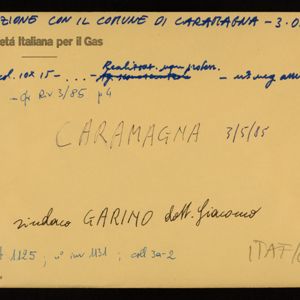 ZIONE CON IL COMUNE DI CARAMAGNA - 3.0
età Italiana per il Gas
col. 10x15 - . . . - Realizzaz. - n° neg
- Cfr Riv 3/85 p 4
CARAMAGNA 3/5/85
sindaco GARINO dott. Giacomo
1125; n° inv 1131; coll 3a-2
ITAF/